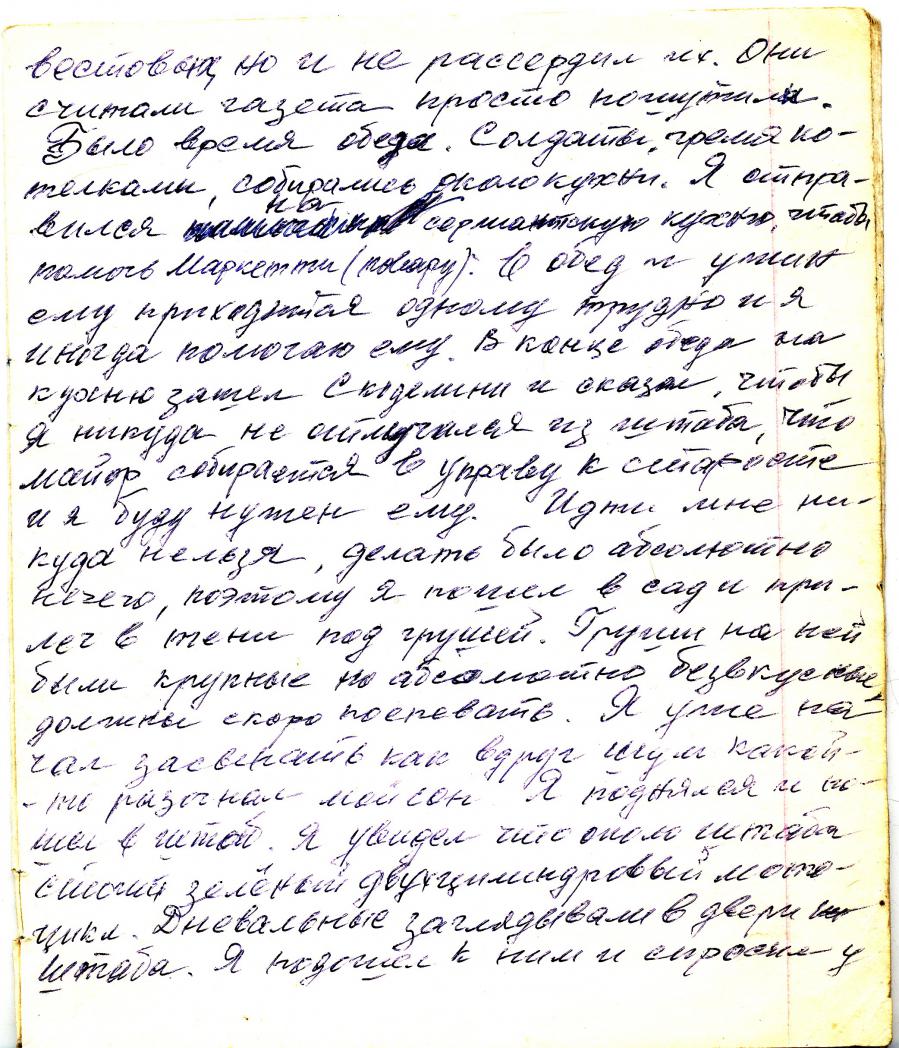 вестовых, но и не рассердил их. Они
считали газета просто пошутила.
Было время обеда. Солдаты, гремя ко-
телками, собирались около кухни. Я отпра-
вился на сержантскую кухню, чтобы
помочь Маркетти (повару). В обед и ужин
ему приходится одному трудно и я
иногда помогаю ему. В конце обеда на
кухню зашел и сказал, чтобы
я никуда не отлучался из штаба, что
майор собирается в управу к старосте
и я буду нужен ему. Идти мне ни-
куда нельзя, делать было абсолютно
нечего, поэтому я пошел в сад и при-
лег в тени под грушей. Груши на ней
были крупные но абсолютно безвкусные
должны скоро поспевать. Я уже на-
чал засыпать как вдруг шум какой-
-то разогнал мой сон. Я поднялся и по-
шел в штаб. Я увидел что около штаба
стоит зелёный двухцилиндровый мото-
цикл. Дневальные заглядывали в двери
штаба. Я подошел к ним и спросил у